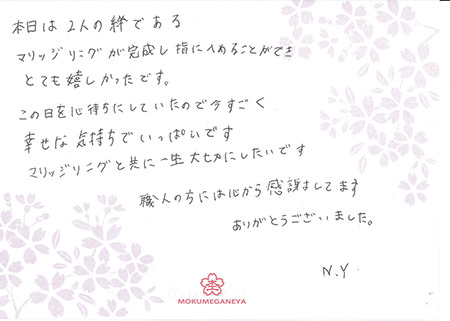 本日は2人の絆である
マリッジリングが完成し指にはめることができ
とても嬉しかったです。
この日を心待ちにしていたので今すごく
幸せな気持ちでいっぱいです
マリッジリングと共に一生大切にしたいです
職人の方には心から感謝してます
ありがとうございました。
N.Y
MOKUMEGANEYA